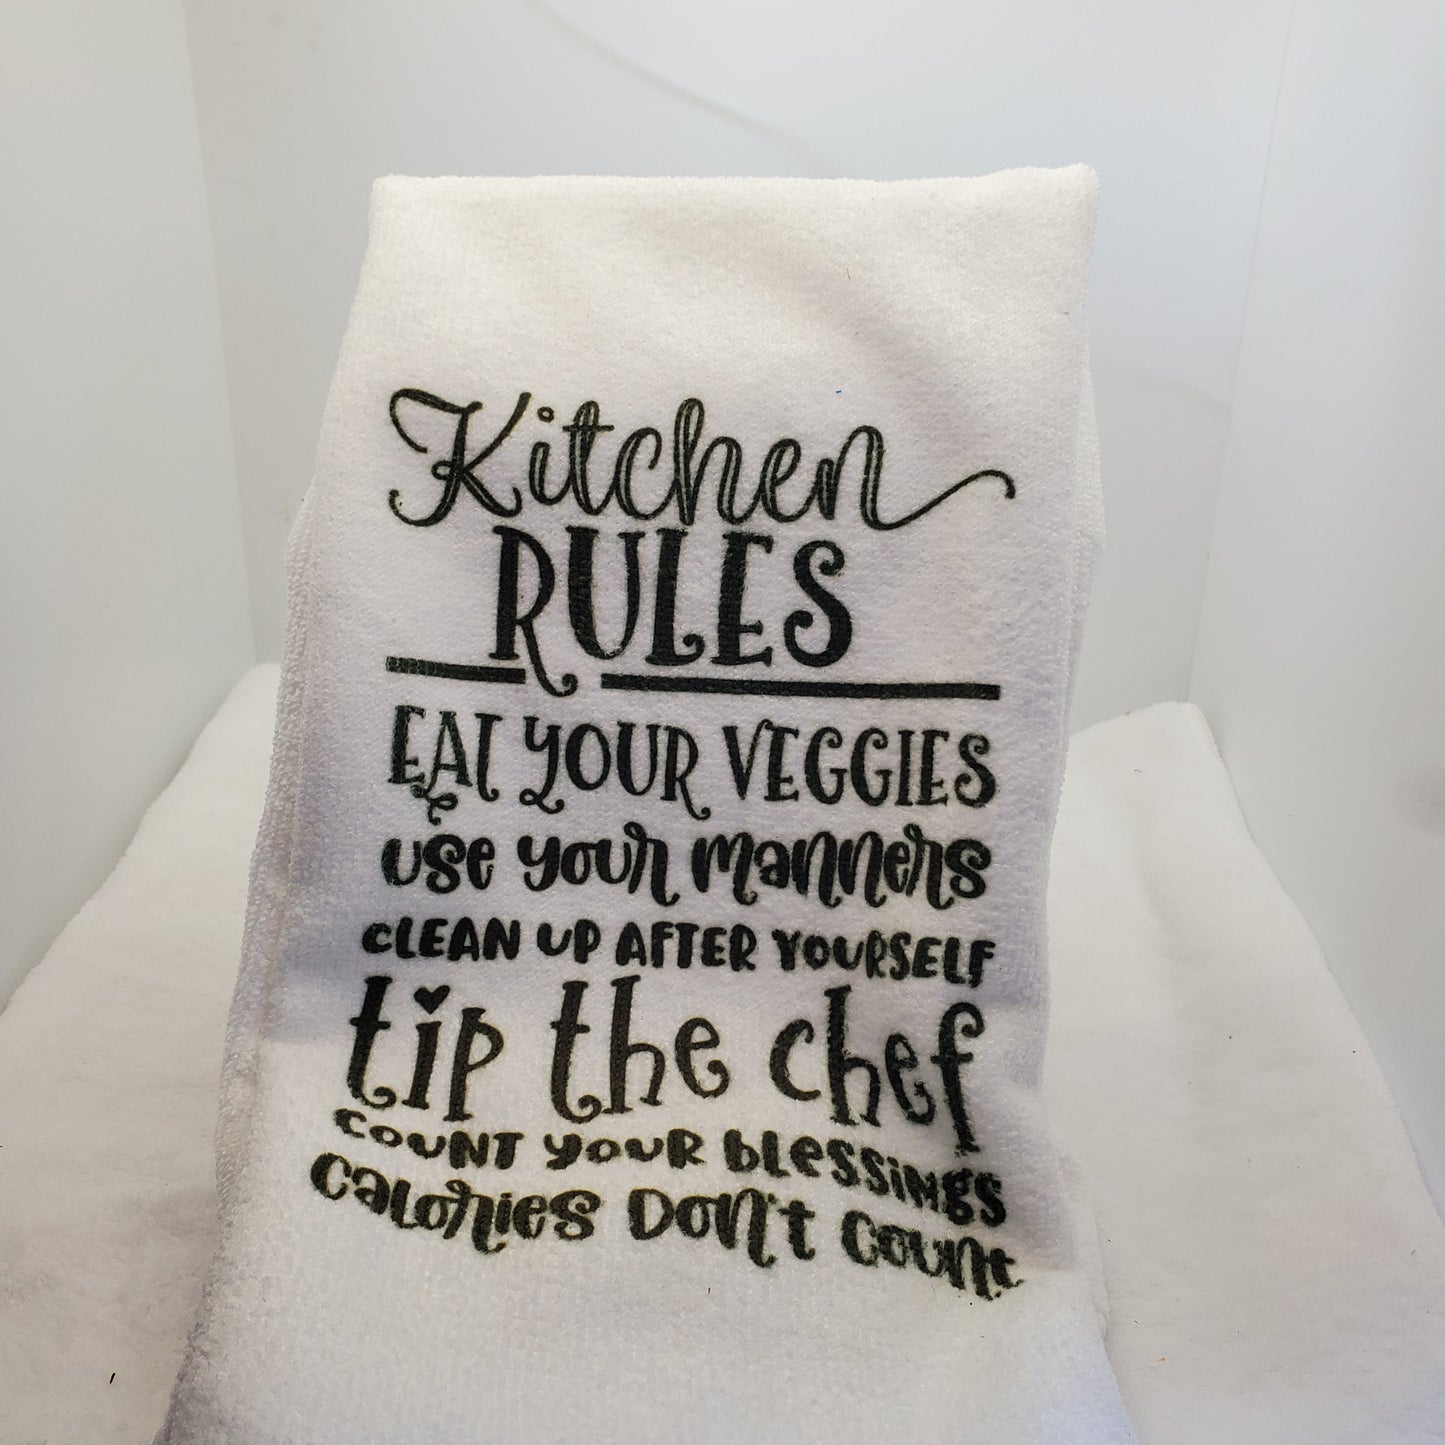 Kitchen
RULES
EAT YOUR VEGGIES
use your manners
CLEAN UP AFTER YOURSELF
tip the chef
COUNT YOUR BLESSINGS
Calories Don't Count